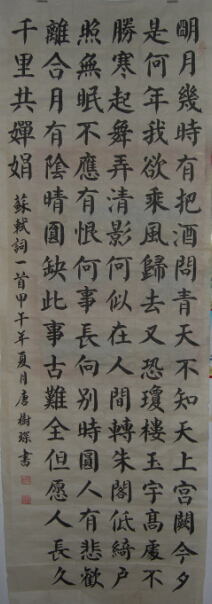 明月幾時有把酒問青天不知天上宫闕今夕
是何年我欲乘風歸去又恐瓊樓玉宇髙處不
勝寒起舞弄清影何似在人間轉朱閣低綺户
照無眠不應有恨何事長向别時圓人有悲歡
離合月有陰晴圓缺此事古難全但愿人長久
千里共嬋娟
蘇軾詞一首甲午年夏月唐樹琛書